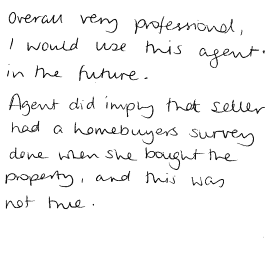 Overall very professional,
I would use this agent.
in the future.
Agent did imply that seller
had a homebuyers survey
done when she bought the
property, and this was
not true.